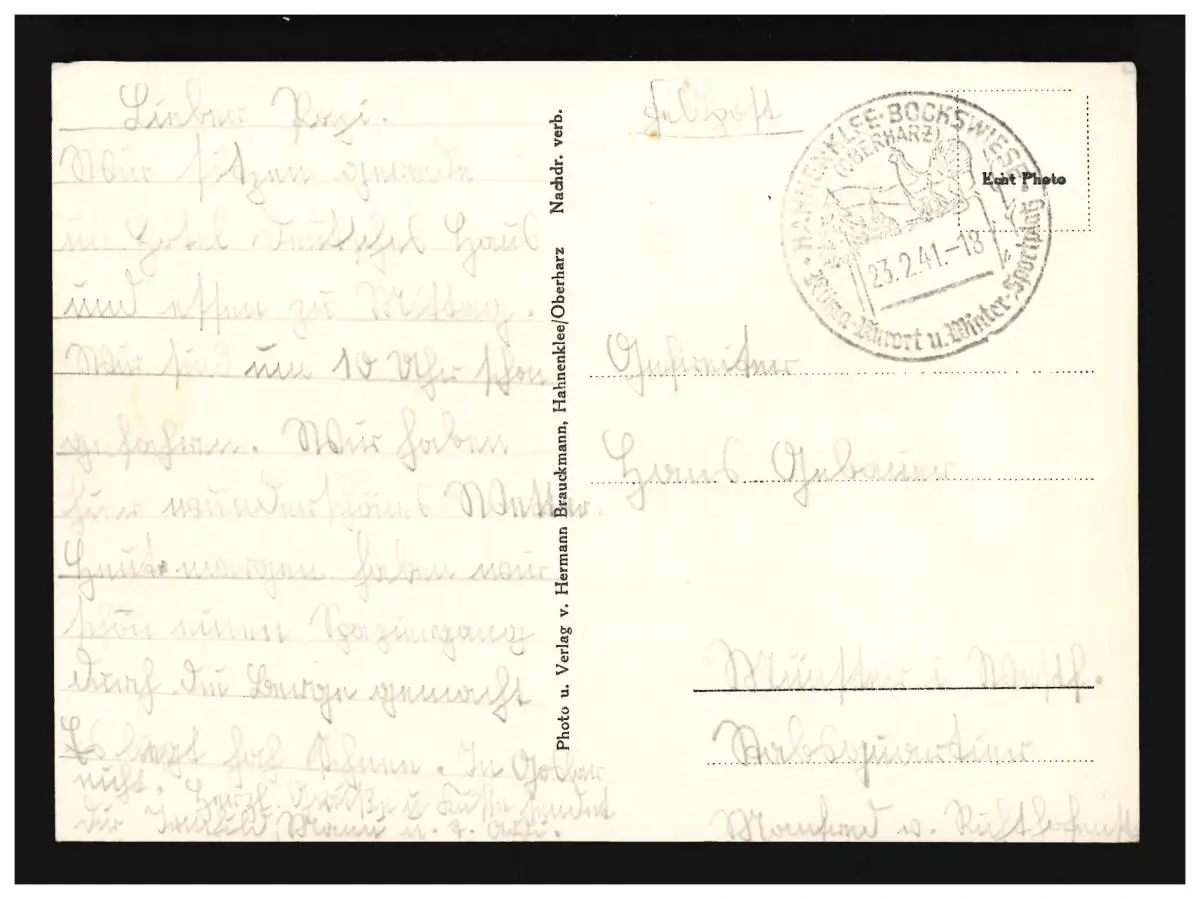 Lieber Razi.
Wir sitzen gerade
im Hotel Deutsches Haus
und essen zu Mittag.
Wir sind um 10 Uhr schon
gefahren. Wir haben
hier wunderschönes Wetter.
Heute morgen haben wir
schön einen Spaziergang
durch die Berge gemacht
Es liegt hoch Schnee. In Goslar
nicht. Herzl. Grüße u Küsse sendet
dir
Photo u. Verlag v. Hermann Brauckmann, Hahnenklee/Oberharz Nachdr. verb.
Feldpost
HAHNENKLEE-BOCKSWIESE
(OBERHARZ)
23.2.41.-18
Klima-Kurort u. Winter-Sportplatz
Echt Photo
Gefreiter
Hans Gebauer
Münster i Westf.
Stabsquartier
Manfred v. Richthofenst